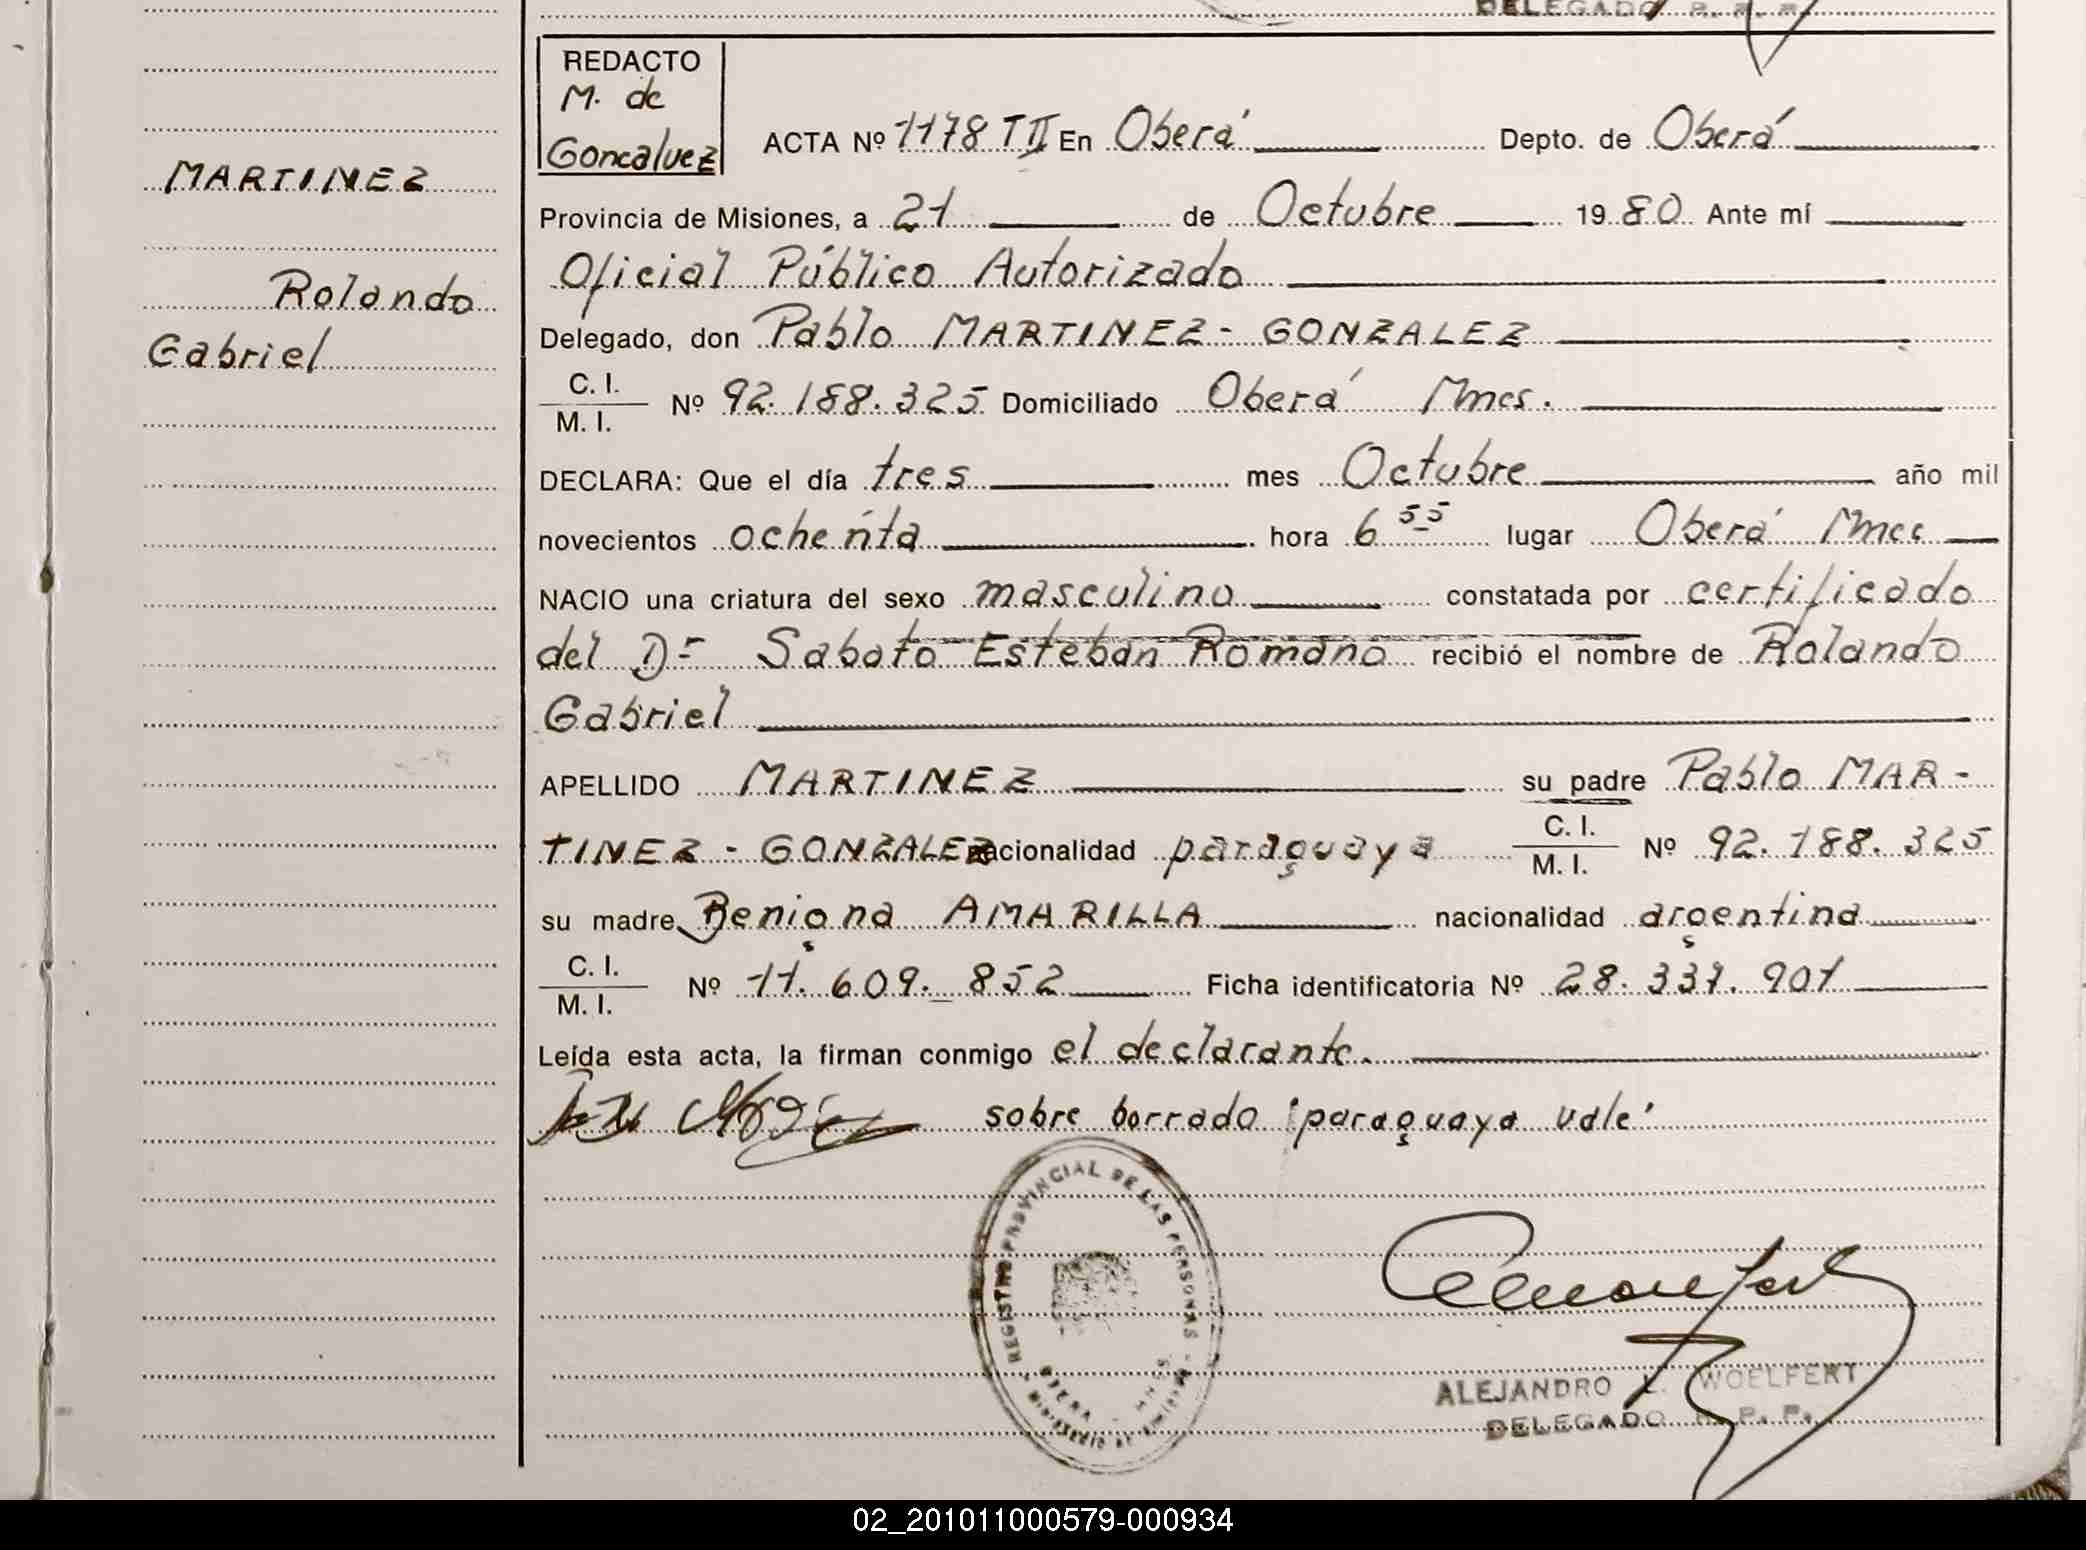 DELEGADO R. P. P.
REDACTO
M. de
Goncalvez
ACTA Nº 1178 TII En Oberá Depto. de Oberá
MARTINEZ
Provincia de Misiones, a 21 de Octubre 1980 Ante mí
Oficial Público Autorizado
Rolando
Delegado, don Pablo MARTINEZ-GONZALEZ
Gabriel
C. I.
M. I. Nº 92.188.325 Domiciliado Oberá Mnes.
DECLARA: Que el día tres mes Octubre año mil
novecientos ochenta hora 6 55 lugar Oberá Mnes
NACIO una criatura del sexo masculino constatada por certificado
del Dr Sabato Esteban Romano recibió el nombre de Rolando
Gabriel
APELLIDO MARTINEZ su padre Pablo MAR-
TINEZ-GONZALEZ nacionalidad paraguaya C. I. M. I. Nº 92.188.325
su madre Benigna AMARILLA nacionalidad argentina
C. I.
M. I. Nº 11.609.852 Ficha identificatoria Nº 28.337.901
Leída esta acta, la firman conmigo el declarante.
sobre borrado "paraguaya vale"
REGISTRO PROVINCIAL DE LAS PERSONAS
OBERA - MNES
ALEJANDRO L. WOELFERT
DELEGADO R. P. P.
02_201011000579-000934